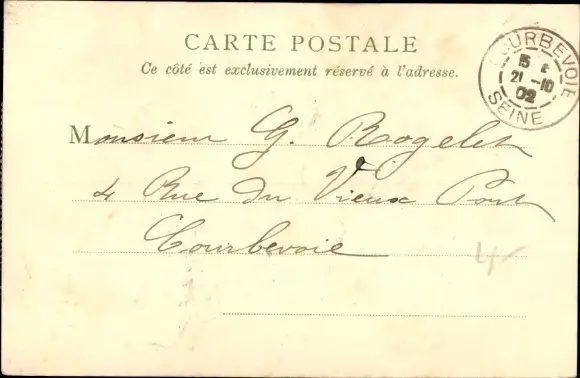 CARTE POSTALE
Ce côté est exclusivement réservé à l'adresse.
COURBEVOIE
15 E
21 -10
02
SEINE
Monsieur G. Rogelet
4 Rue du Vieux Pont
Courbevoie
4